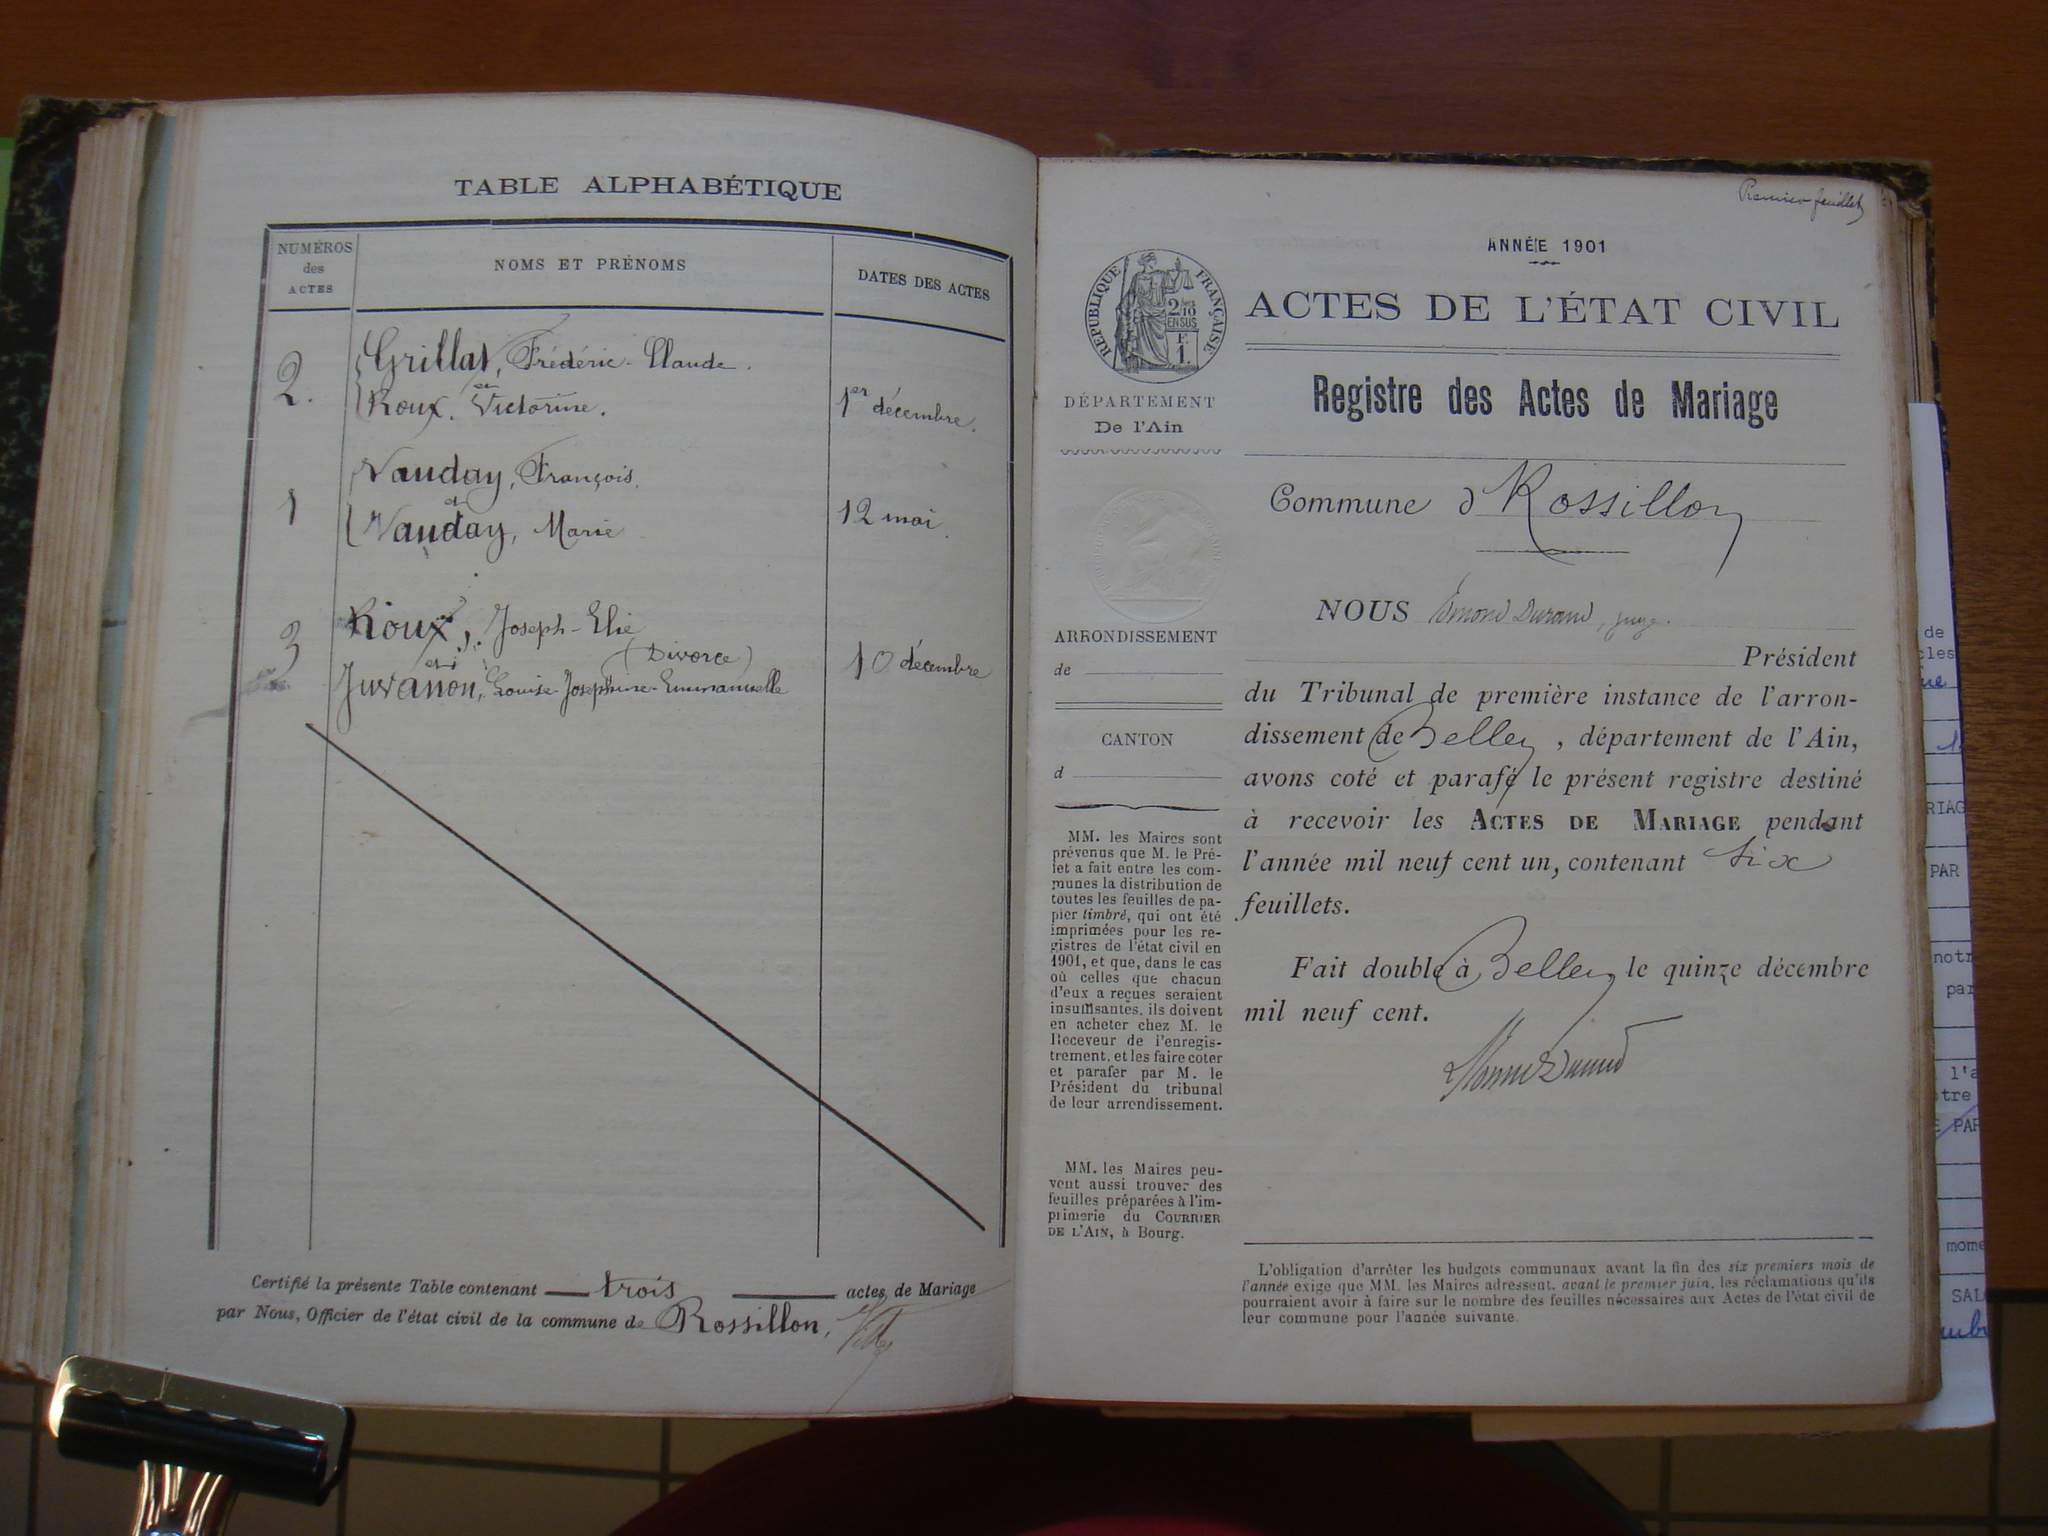 TABLE ALPHABÉTIQUE
NUMÉROS
des
ACTES
NOMS ET PRÉNOMS
DATES DES ACTES
2.
Grillat, Frédéric-Claude.
et
Roux. Victorine.
1er décembre.
1
Vauday, François.
et
Vauday, Marie
12 mai.
3
Roux, Joseph-Elie
(Divorce)
et
Juvanon, Louise-Josephine-Emmanuelle
10 décembre
Certifié la présente Table contenant trois actes de Mariage
par Nous, Officier de l'état civil de la commune de Rossillon.
Premier feuillet
ANNÉE 1901
RÉPUBLIQUE FRANÇAISE
2/10
EN SUS
F.
1.
ACTES DE L'ÉTAT CIVIL
Registre des Actes de Mariage
DÉPARTEMENT
De l'Ain
Commune d Rossillon
ARRONDISSEMENT
de
CANTON
d
NOUS Durand, juge.
Président
du Tribunal de première instance de l'arron-
dissement de Belley, département de l'Ain,
avons coté et parafé le présent registre destiné
à recevoir les ACTES DE MARIAGE pendant
l'année mil neuf cent un, contenant six
feuillets.
Fait double à Belley, le quinze décembre
mil neuf cent.
MM. les Maires sont
prévenus que M. le Pré-
fet a fait entre les com-
munes la distribution de
toutes les feuilles de pa-
pier timbré, qui ont été
imprimées pour les re-
gistres de l'état civil en
1901, et que, dans le cas
où celles que chacun
d'eux a reçues seraient
insuffisantes, ils doivent
en acheter chez M. le
Receveur de l'enregis-
trement, et les faire coter
et parafer par M. le
Président du tribunal
de leur arrondissement.
MM. les Maires peu-
vent aussi trouver des
feuilles préparées à l'im-
primerie du COURRIER
DE L'AIN, à Bourg.
L'obligation d'arrêter les budgets communaux avant la fin des six premiers mois de
l'année exige que MM. les Maires adressent, avant le premier juin, les réclamations qu'ils
pourraient avoir à faire sur le nombre des feuilles nécessaires aux Actes de l'état civil de
leur commune pour l'année suivante.